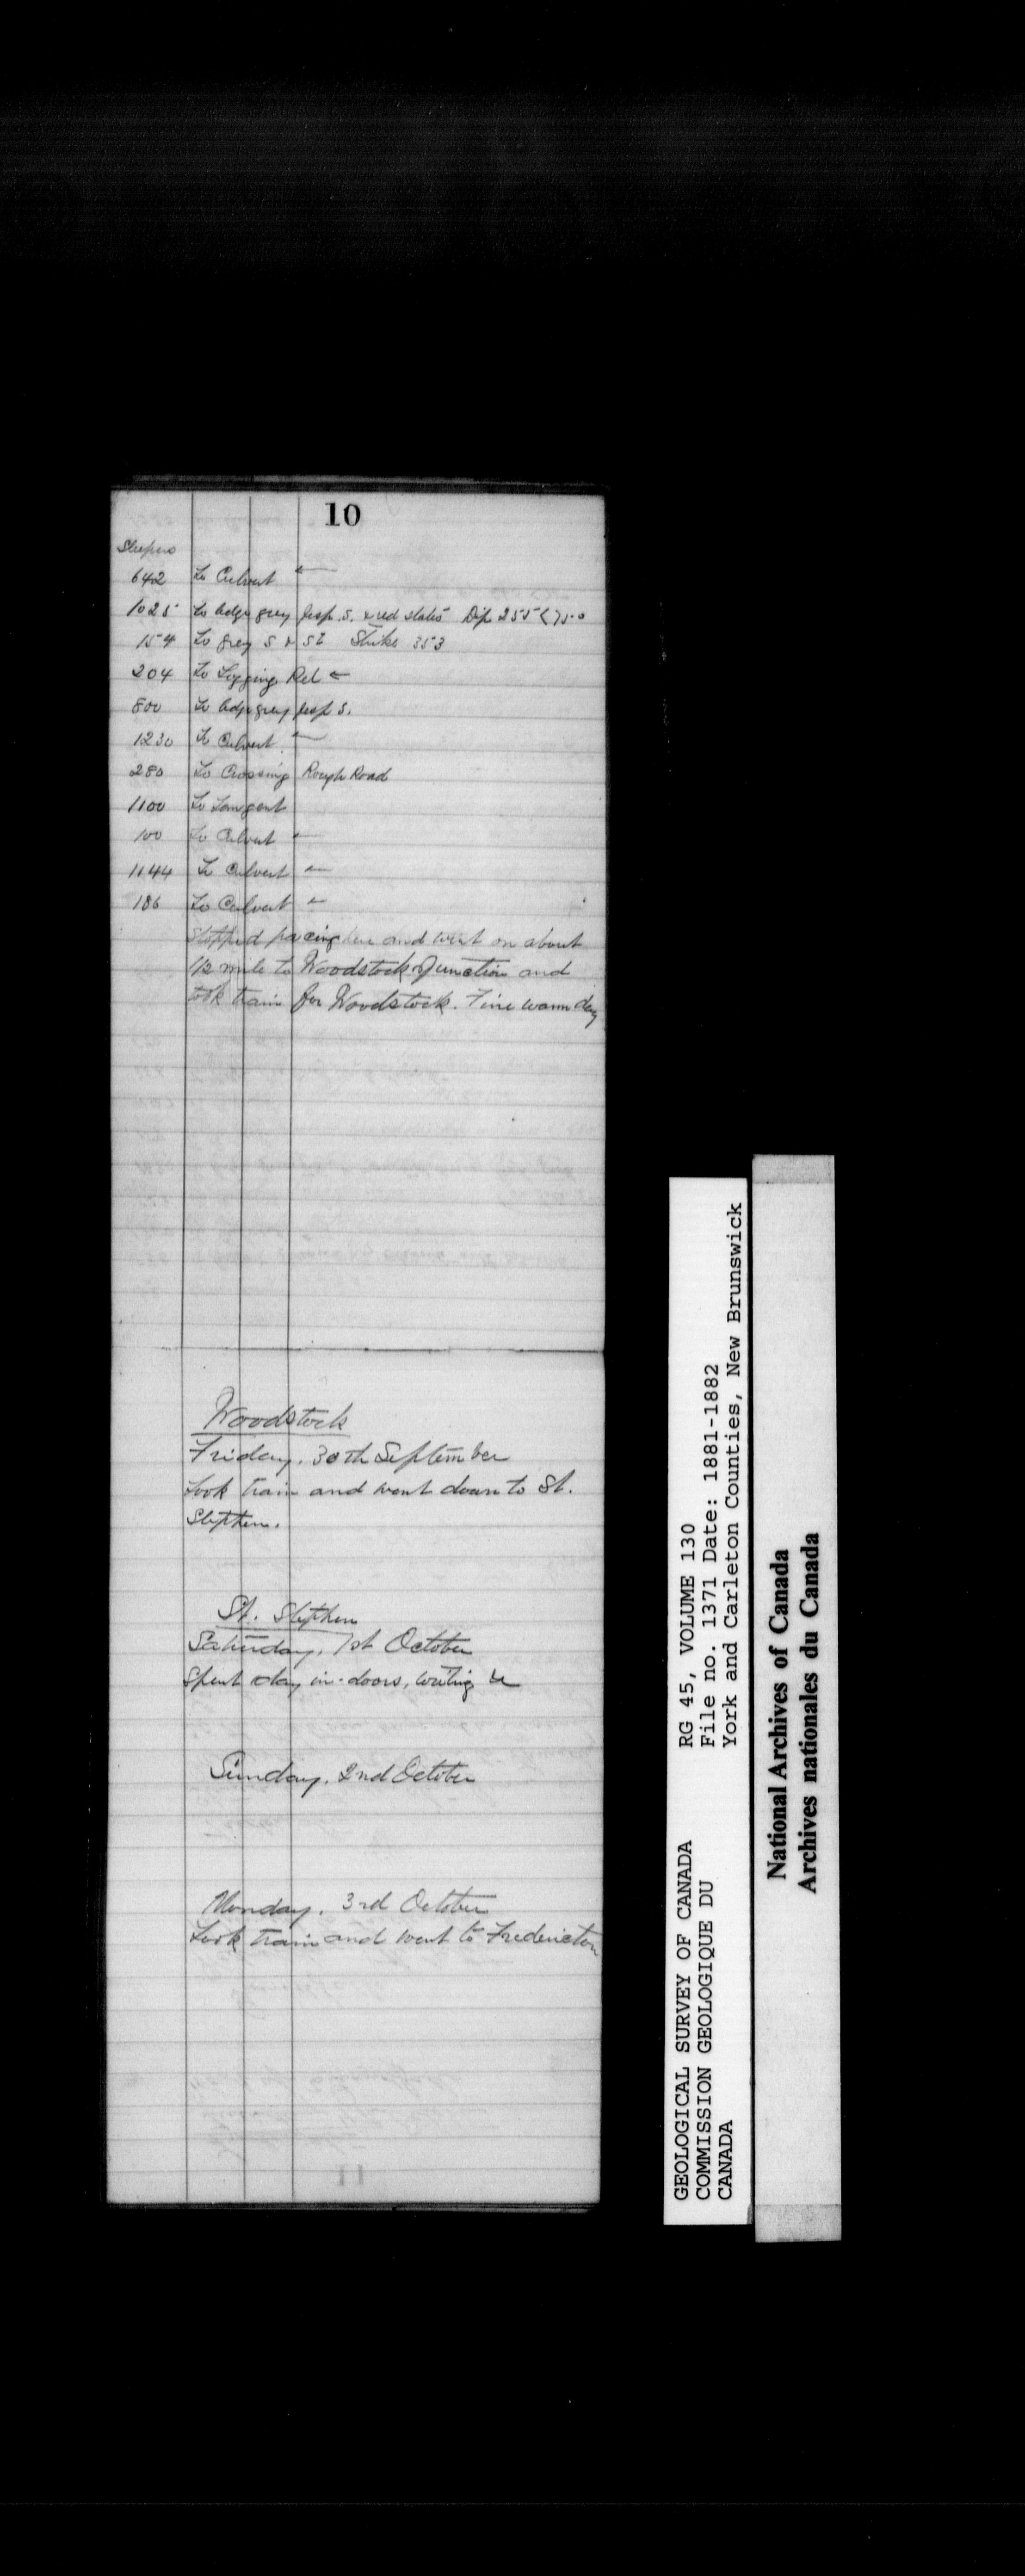 10
Sleepers
642 To Culvert ←
1025 To ledge grey felsp. S. & red slates Dip 255 < 75°
154 To grey S & Sl Strike 353
204 To Logging Rd ←
800 To ledge grey felsp S.
1230 To Culvert ←
280 To Crossing Rough Road
1100 To Tangent
100 To Culvert ←
1144 To Culvert ←
186 To Culvert ←
Stopped pacing here and went on about
1/2 mile to Woodstock Junction and
took train for Woodstock. Fine warm day
Woodstock
Friday. 30th September
Took train and went down to St.
Stephen.
St. Stephen
Saturday. 1st October
Spent day in-doors, writing &c
Sunday. 2nd October
Monday. 3rd October
Took train and went to Fredericton
GEOLOGICAL SURVEY OF CANADA
COMMISSION GEOLOGIQUE DU
CANADA
RG 45, VOLUME 130
File no. 1371 Date: 1881-1882
York and Carleton Counties, New Brunswick
National Archives of Canada
Archives nationales du Canada